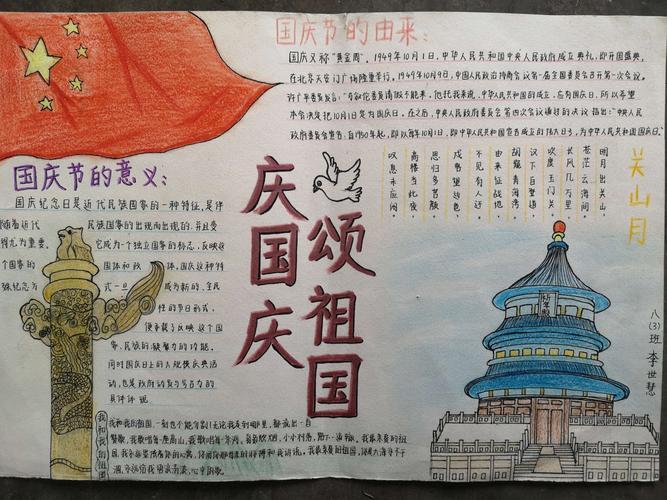 国庆节的由来:
国庆又称“黄金周”。1949年10月1日,中华人民共和国中央人民政府成立典礼,即开国盛典,
在北京天安门广场隆重举行。1949年10月9日,中国人民政治协商会议第一届全国委员会召开第一次会议。
许广平委员发言:“马叙伦委员请假不能来,他托我来说,中华人民共和国的成立,应有国庆日,所以希望
本会决定把10月1日定为国庆日。在之后,中央人民政府委员会第四次会议通过的决议指出:“中央人民
政府委员会宣告:自1950年起,即以每年10月1日,即中华人民共和国宣告成立的伟大日子,为中华人民共和国国庆日。”
国庆节的意义:
国庆纪念日是近代民族国家的一种特征,是伴
随着近代
民族国家的出现而出现的,并且变
得尤为重要。
它成为一个独立国家的标志,反映这
个国家的
国体和政体,国庆这种特
殊纪念方
式一旦成为新的、全民
性的节日形式,
便承载了反映这个国
家、民族的凝聚力的功能。
同时国庆日上的大规模庆典活
动,也是政府动员与号召力的
具体体现
庆国庆
颂祖国
关山月
明月出天山,
苍茫云海间。
长风几万里,
吹度玉门关。
汉下白登道,
胡窥青海湾。
由来征战地,
不见有人还。
戍客望边色,
思归多苦颜。
高楼当此夜,
叹息未应闲。
祈年殿
八(3)班 李世慧
我和我的祖国
我和我的祖国,一刻也不能分割!无论我走到哪里,都流出一首
赞歌。我歌唱每一座高山,我歌唱每一条河。袅袅炊烟,小小村落,路上一道辙。我最亲爱的祖